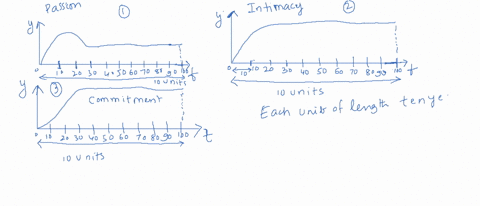 Passion ①
y
0 10 20 30 40 50 60 70 80 90 100 t
10 units
Intimacy ②
y
0 10 20 30 40 50 60 70 80 90 100 t
10
10 units
③
y
Commitment
0 10 20 30 40 50 60 70 80 90 100 t
10 units
Each units of length ten